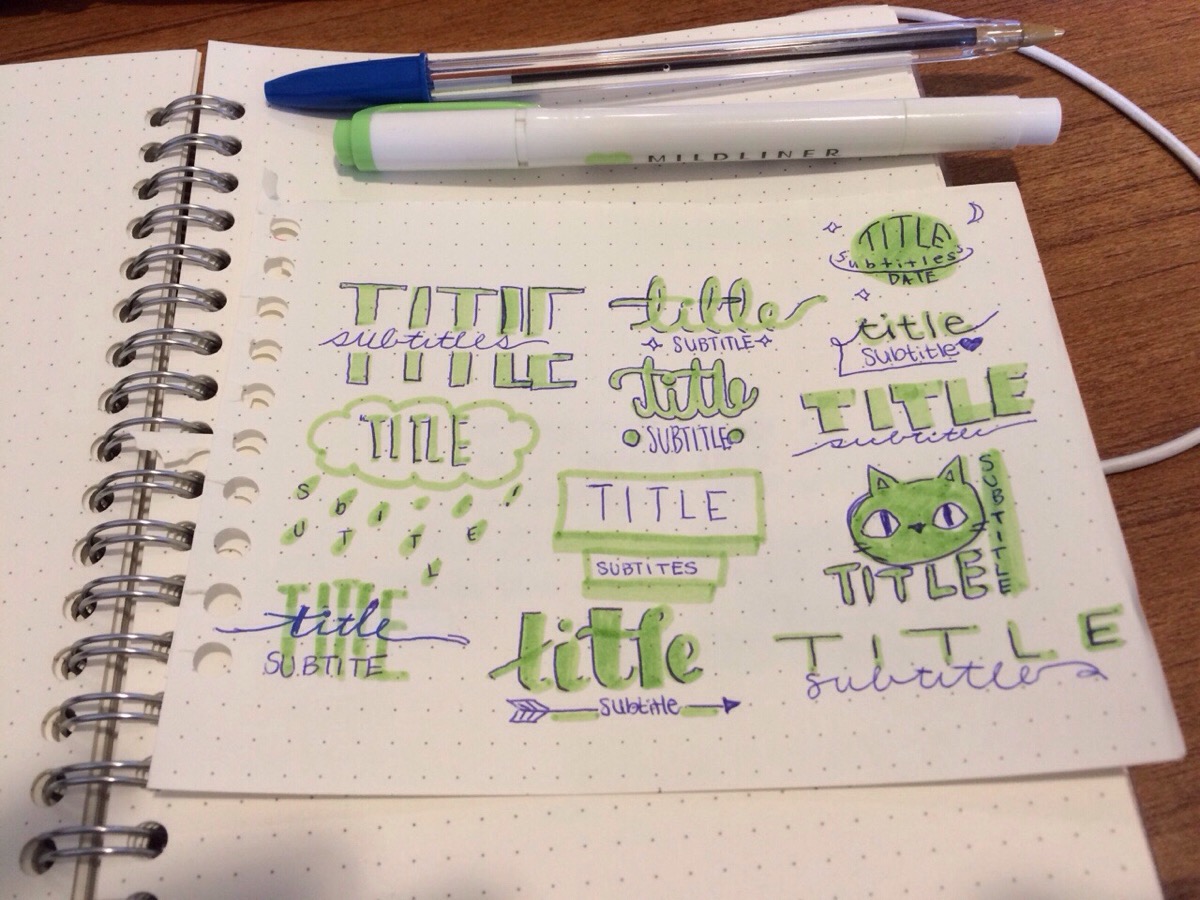 MILDLINER
TITLE
subtitles
DATE
TITLE
subtitles
title
SUBTITLE
title
Subtitle
title
SUBTITLE
TITLE
TITLE
SUbTiTLE
TITLE
SUBTITES
SUBTITLE
TITLE
TITLE
title
SUBTITE
title
Subtitle
TITLE
subtitle